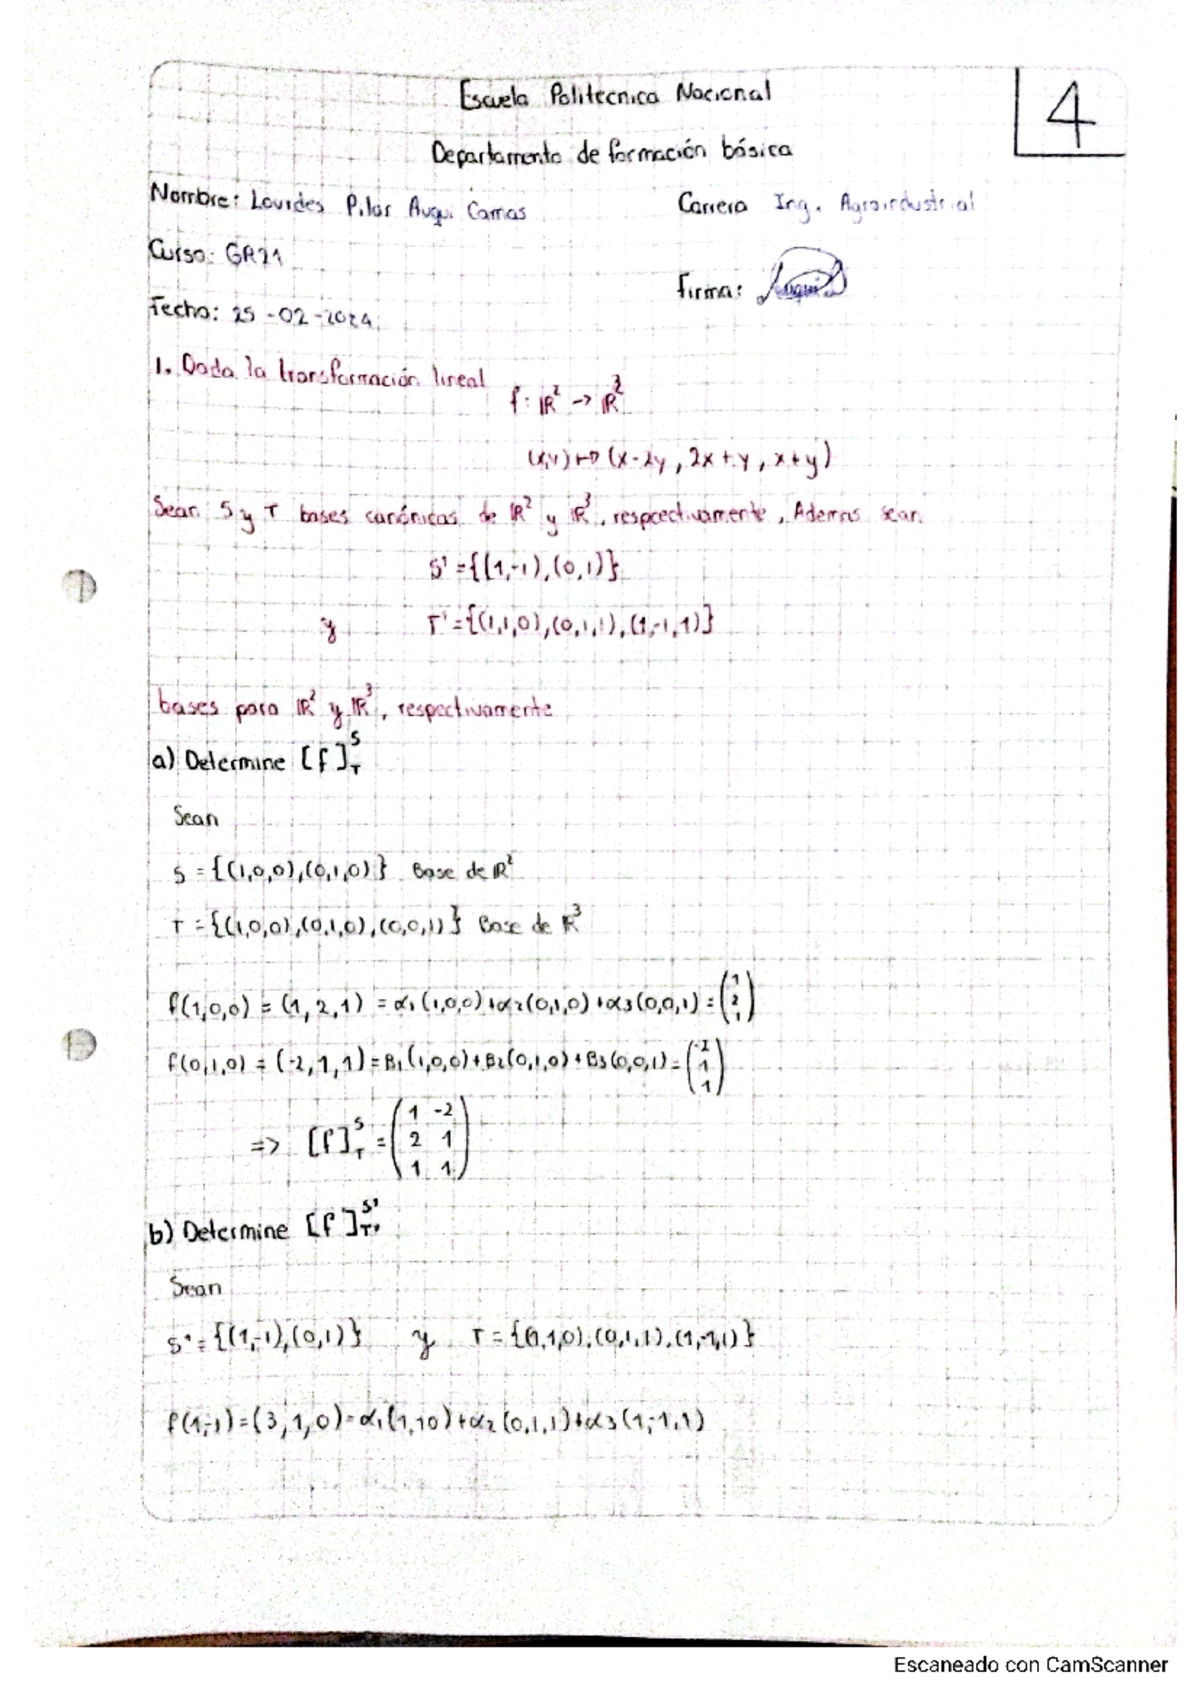 Escuela Politecnica Nacional
4
Departamento de formación básica
Nombre: Lourdes Pilar Auqui Camas
Carrera Ing. Agroindustrial
Curso: GR21
Firma:
Fecha: 25-02-2024
1. Dada la transformación lineal
f: ℝ² → ℝ³
(x,y) ↦ (x-2y, 2x+y, x+y)
Sean S y T bases canónicas de ℝ² y ℝ³, respectivamente, Ademas sean
S' = {(1,-1),(0,1)}
y T' = {(1,1,0),(0,1,1),(1,-1,1)}
bases para ℝ² y ℝ³, respectivamente
a) Determine [f]ˢ_T
Sean
S = {(1,0,0),(0,1,0)} Base de ℝ²
T = {(1,0,0),(0,1,0),(0,0,1)} Base de ℝ³
f(1,0,0) = (1,2,1) = α₁(1,0,0)+α₂(0,1,0)+α₃(0,0,1) = (1 2 1)
f(0,1,0) = (-2,1,1) = B₁(1,0,0)+B₂(0,1,0)+B₃(0,0,1) = (-2 1 1)
=> [f]ˢ_T = (1 -2
2 1
1 1)
b) Determine [f]^S'_T'
Sean
S' = {(1,-1),(0,1)} y T = {(1,1,0),(0,1,1),(1,-1,1)}
f(1,-1) = (3,1,0) = α₁(1,10)+α₂(0,1,1)+α₃(1,-1,1)
Escaneado con CamScanner